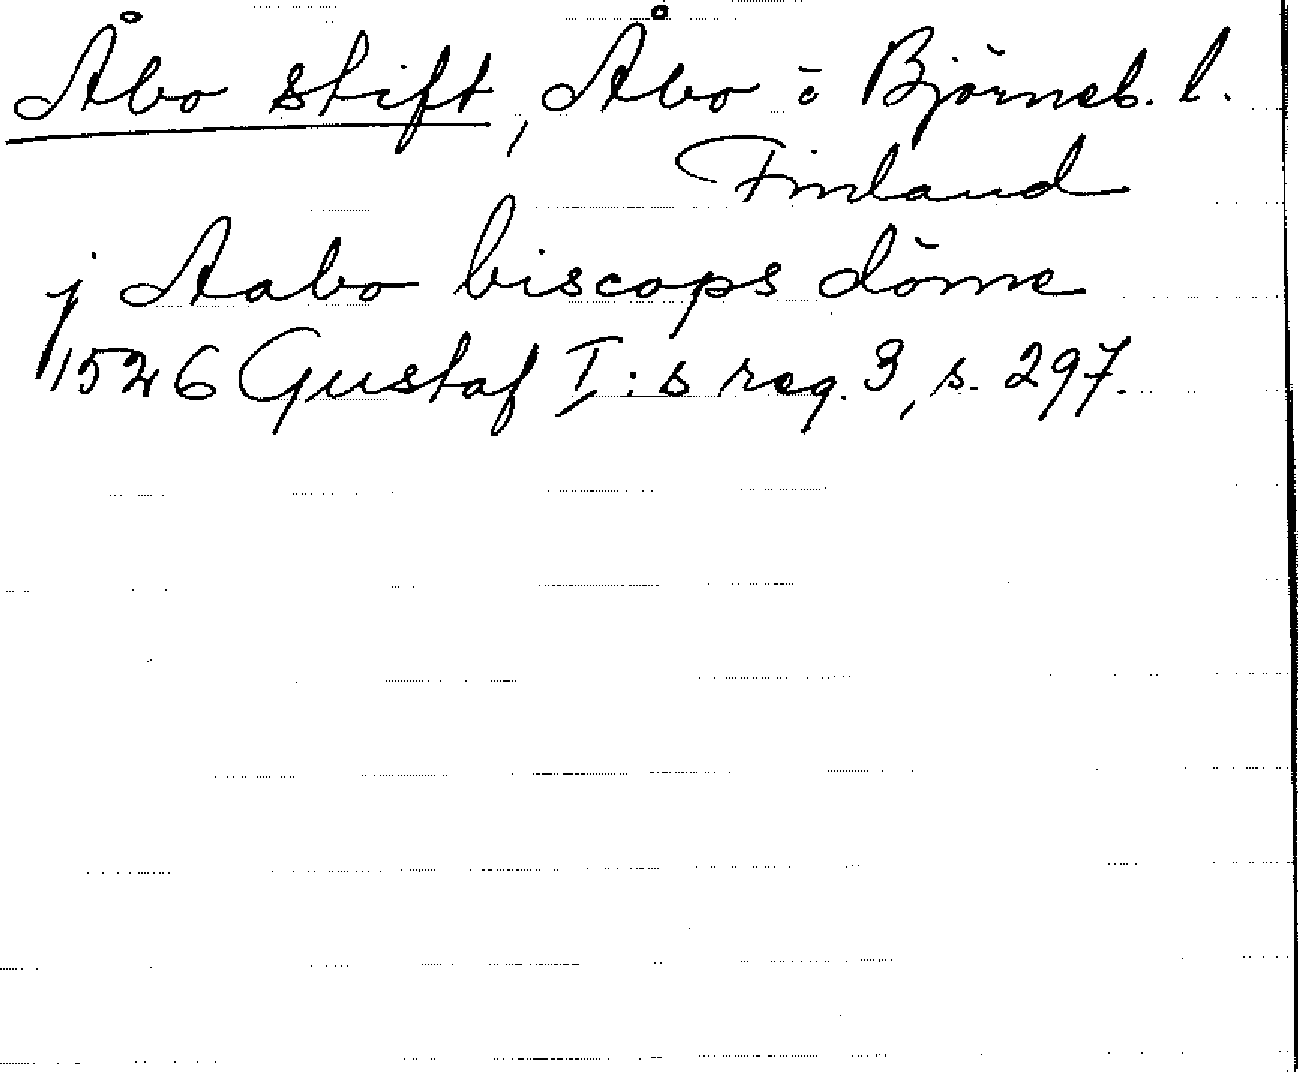 Åbo stift, Åbo ö Björneb. l.
Finland
j Aabo biscops döme
1526 Gustaf I:s reg. 3, s. 297.